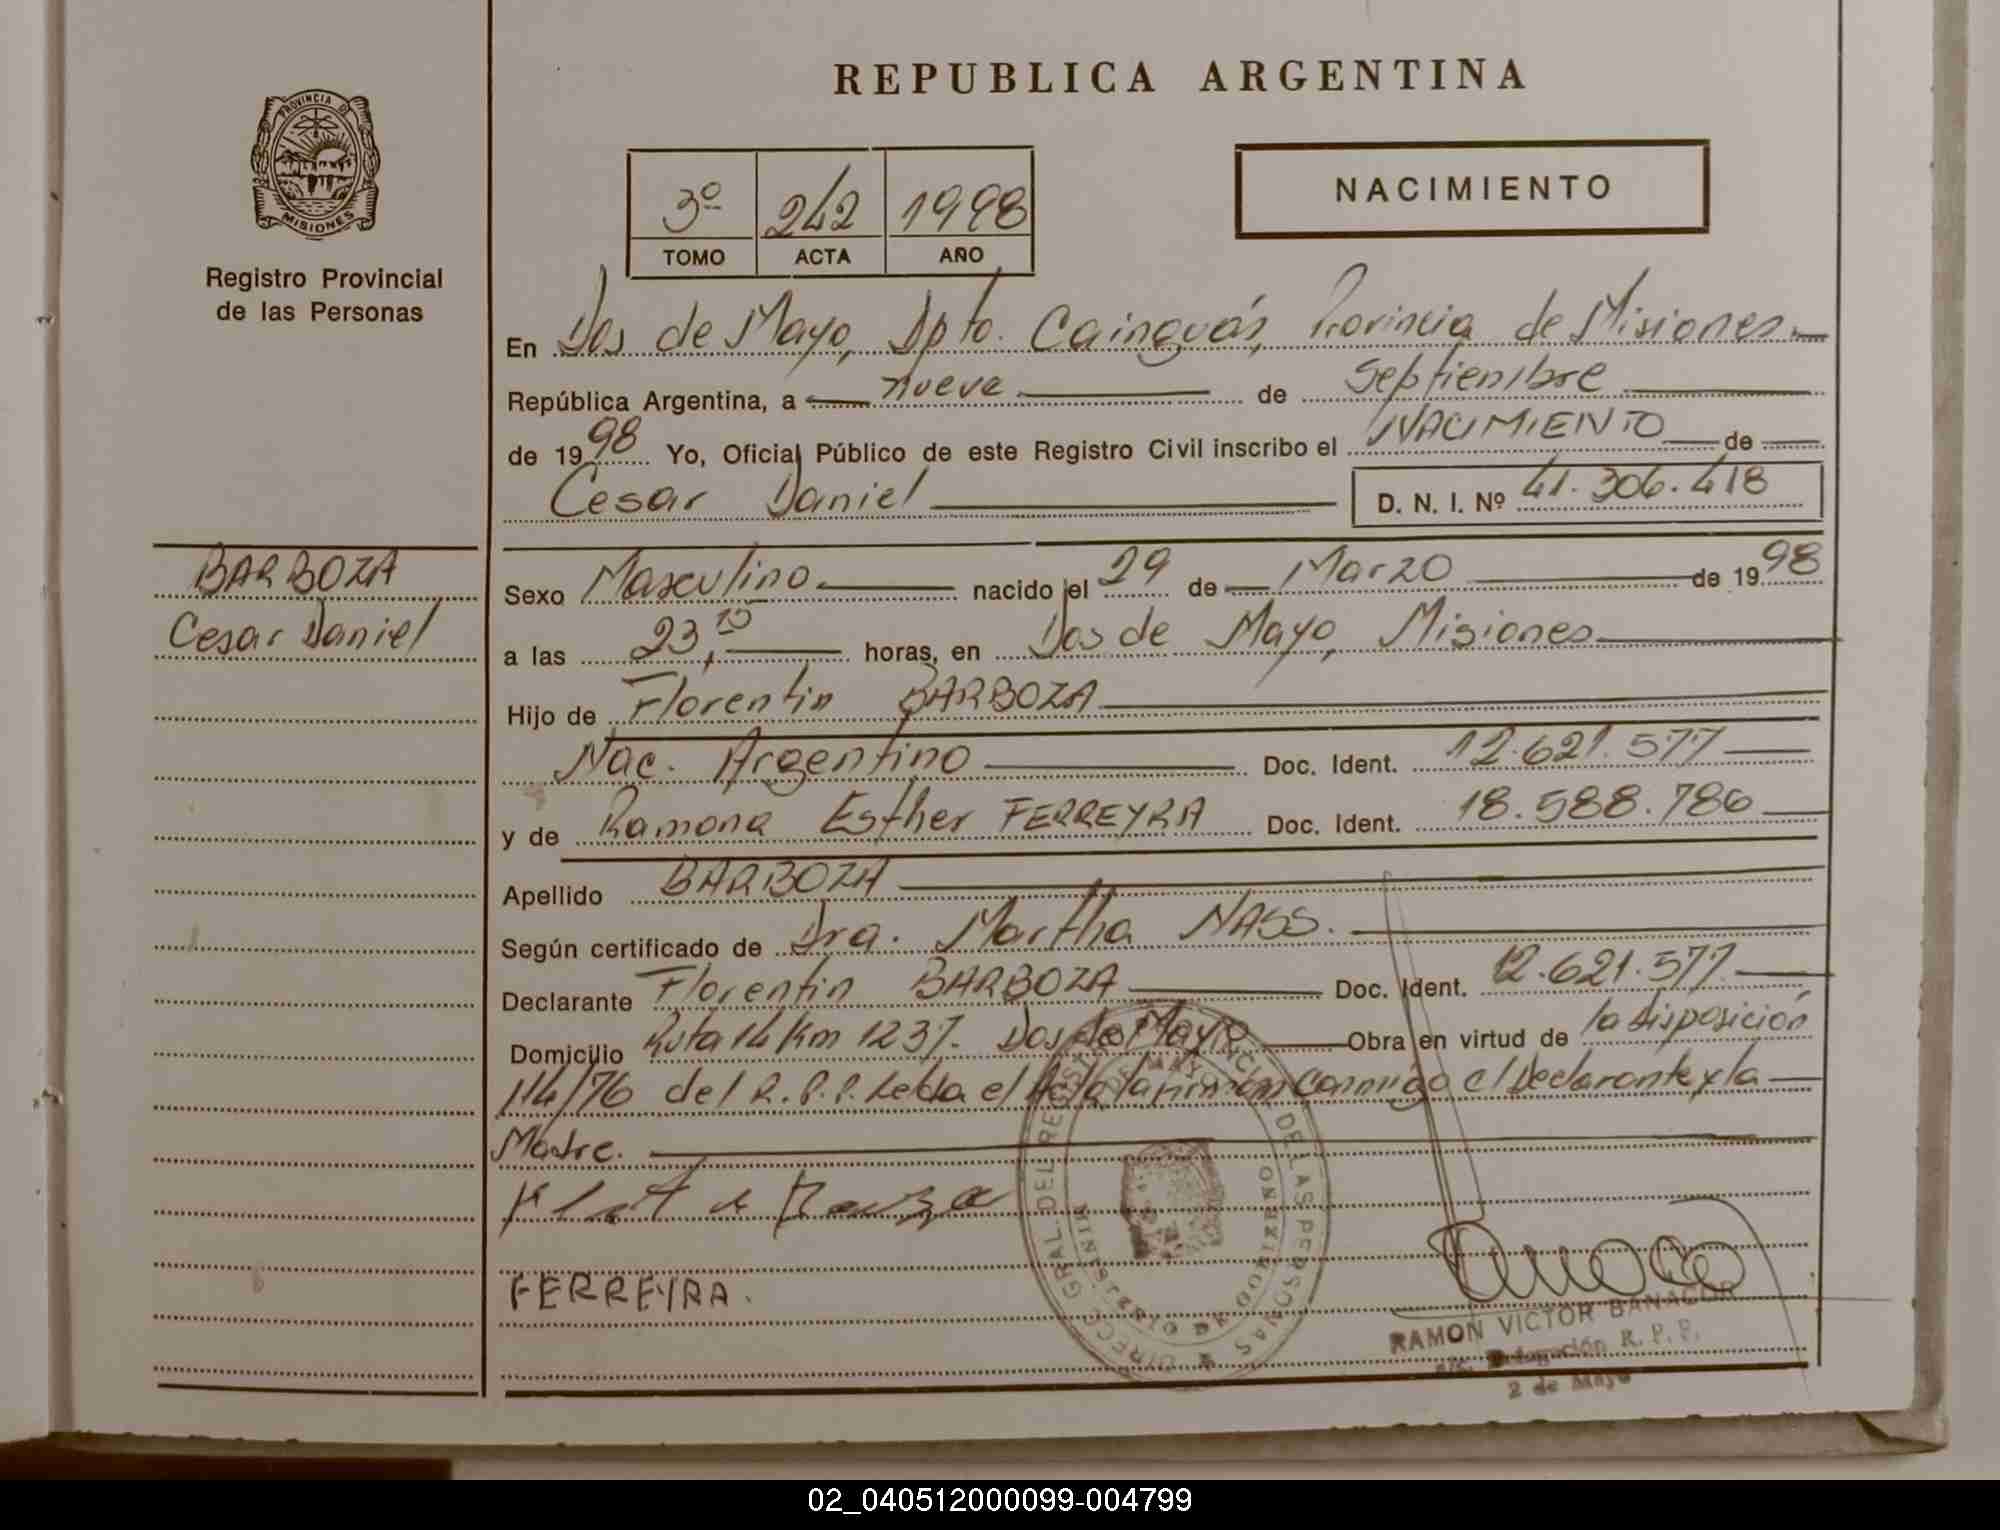 REPUBLICA ARGENTINA
PROVINCIA DE
MISIONES
Registro Provincial
de las Personas
3º 242 1998
TOMO ACTA AÑO
NACIMIENTO
En Dos de Mayo, Dpto. Cainguás, Provincia de Misiones.
República Argentina, a nueve de Septiembre
de 1998 Yo, Oficial Público de este Registro Civil inscribo el NACIMIENTO de
Cesar Daniel D. N. I. Nº 41.306.418
BARBOZA
Cesar Daniel
Sexo Masculino nacido el 29 de Marzo de 1998
a las 23,15 horas, en Dos de Mayo, Misiones
Hijo de Florentin BARBOZA
Nac. Argentino Doc. Ident. 12.621.577
y de Ramona Esther FERREYRA Doc. Ident. 18.588.786
Apellido BARBOZA
Según certificado de Dra. Martha NASS.
Declarante Florentin BARBOZA Doc. Ident. 12.621.577
Domicilio Ruta 14 Km 1237. Dos de Mayo Obra en virtud de la disposición
114/76 del R.P.P. Leida el Acta la firman conmigo el Declarante y la
Madre.
FERREYRA.
RAMON VICTOR BANACOR
Delegación R. P. P.
2 de Mayo
02_040512000099-004799